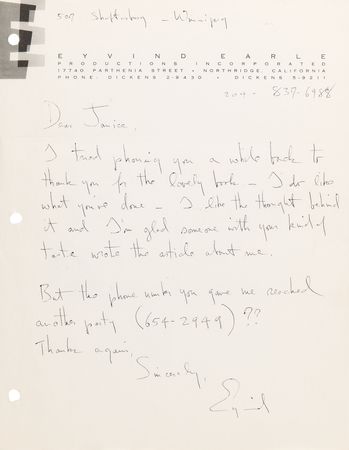 507 Shaftesbury - Winnipeg
EYVIND EARLE
PRODUCTIONS INCORPORATED
17740 PARTHENIA STREET • NORTHRIDGE, CALIFORNIA
PHONE: DICKENS 2-9430 • DICKENS 5-9211
204 - 837-6988
Dear Janice.
I tried phoning you a while back to
thank you for the lovely book - I do like
what you've done - I like the thought behind
it and I'm glad someone with your kind of
taste wrote the article about me.
But the phone number you gave me reached
another party (654-2949) ??
Thanks again,
Sincerely,
Eyvind